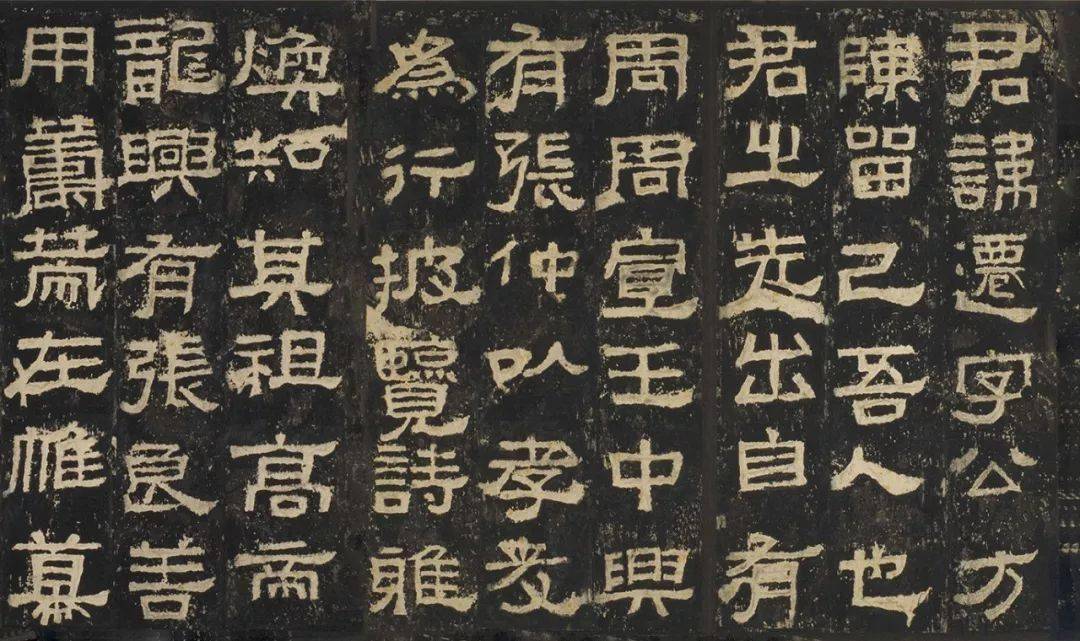 君諱遷字公方
陳留己吾人也
君之先出自有
周周宣王中興
有張仲以孝友
為行披覽詩雅
煥知其祖高帝
龍興有張良善
用籌策在帷幕